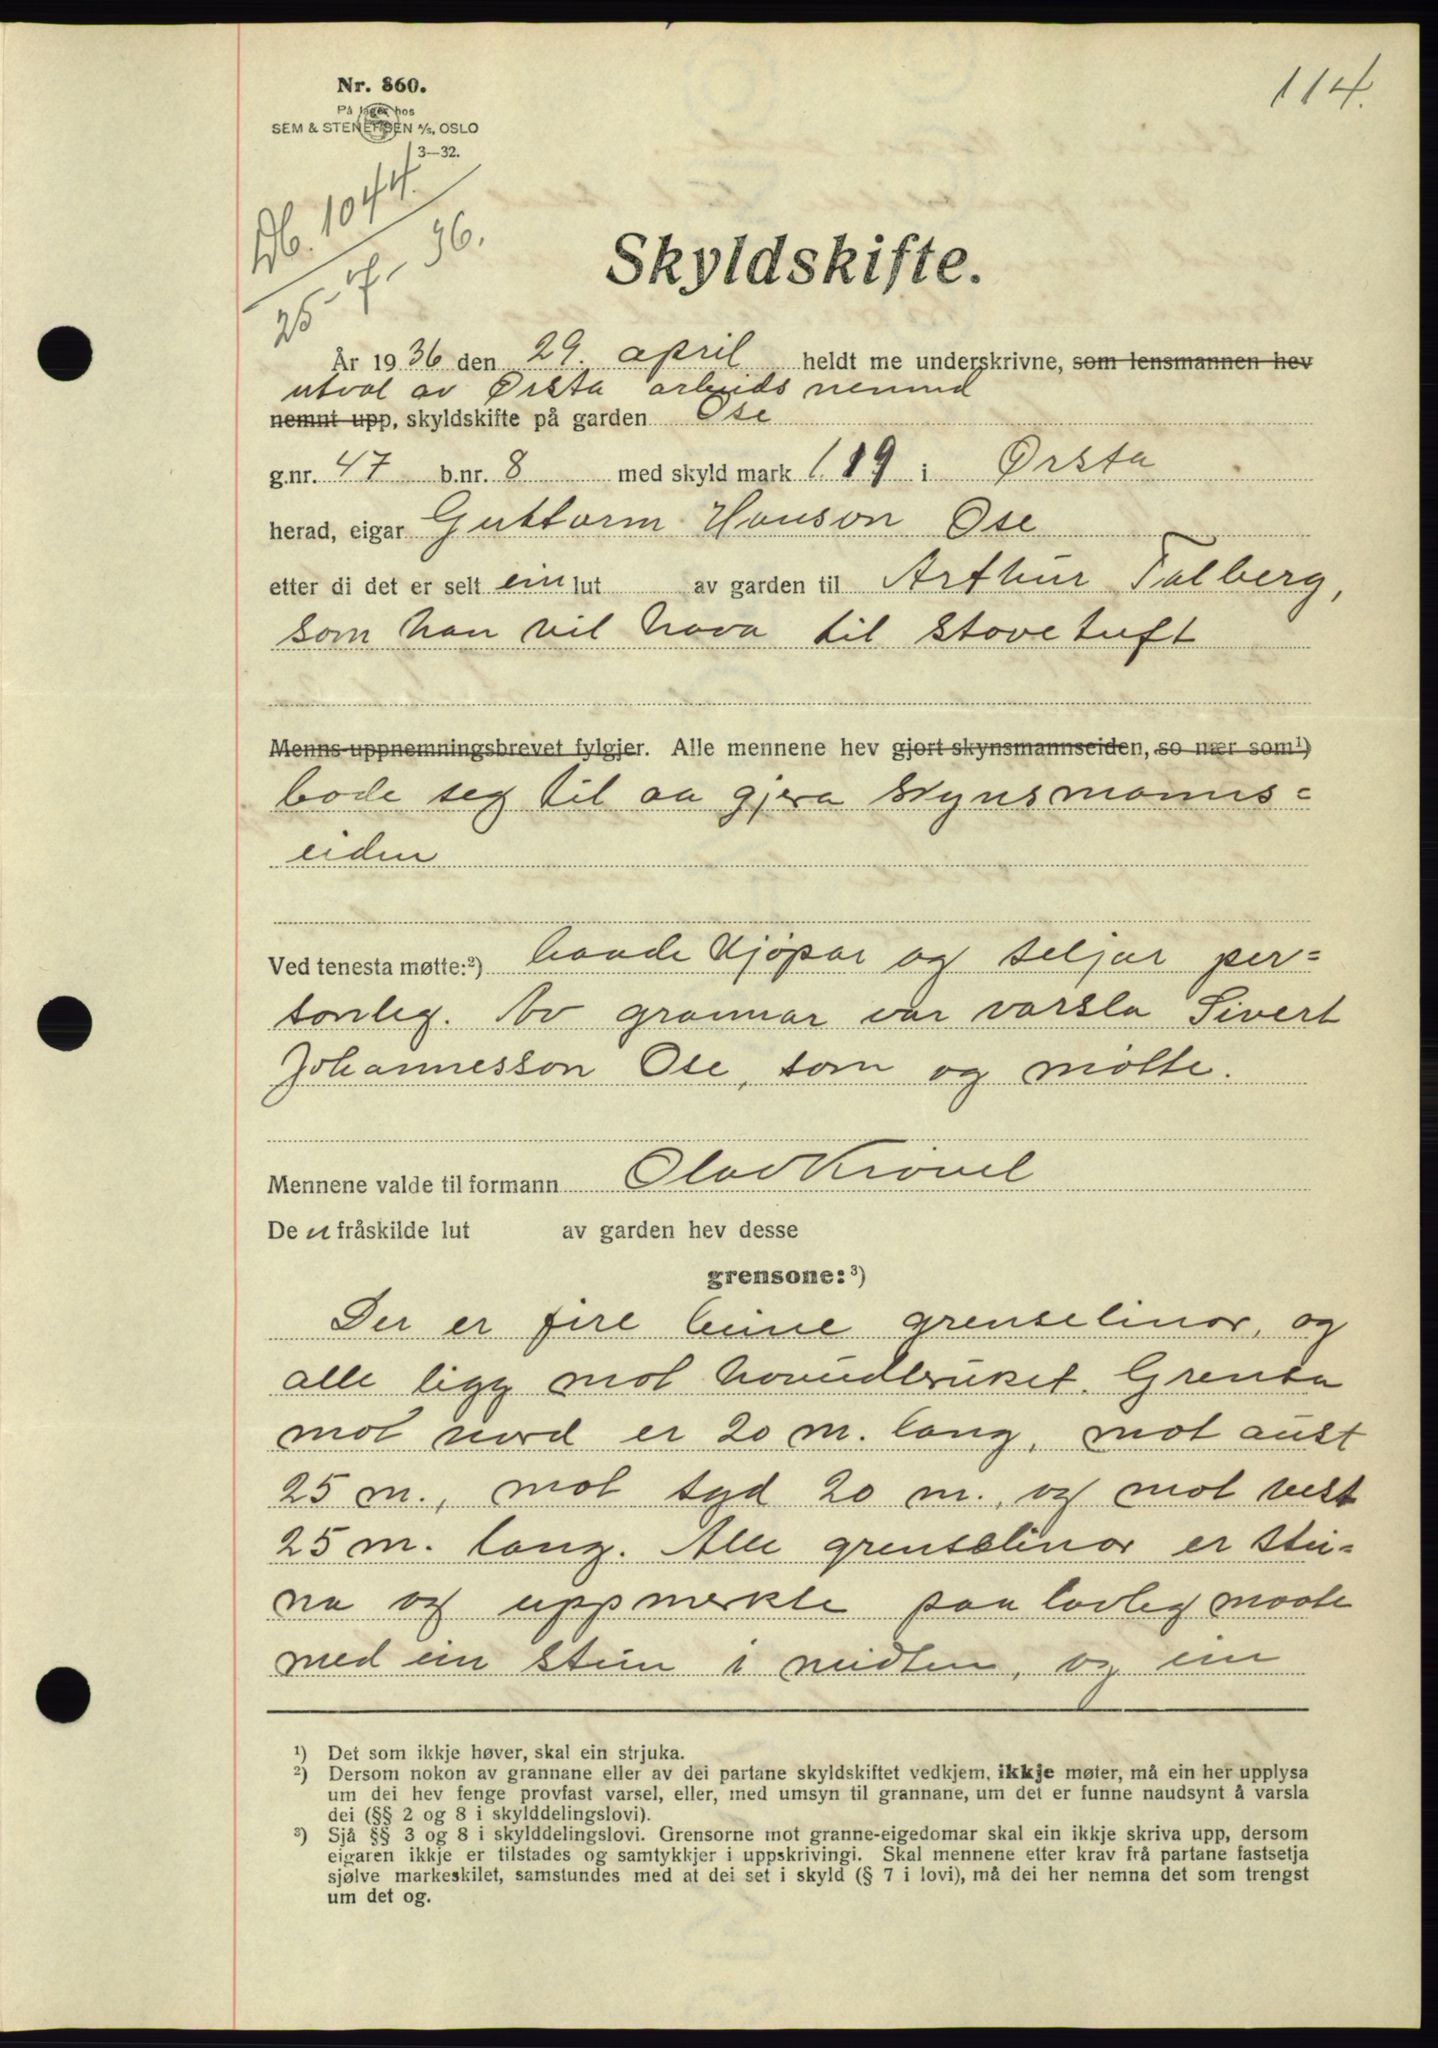 114.
Nr. 860.
På lager hos
SEM & STENERSEN A/S, OSLO
3—32.
Db. 1044.
25-7-36.
Skyldskifte.
År 1936 den 29. april heldt me underskrivne, som lensmannen hev
utval av Ørsta arbeidsnemnd
nemnt upp, skyldskifte på garden Ose
g.nr. 47 b.nr. 8 med skyld mark 1.19 i Ørsta
herad, eigar Guttorm Hanson Ose
etter di det er selt ein lut av garden til Arthur Talberg,
som han vil hava til stovetuft
Menns-uppnemningsbrevet fylgjer. Alle mennene hev gjort skynsmannseiden, so nær som¹)
bode seg til aa gjera skynsmanns=
eiden
Ved tenesta møtte:²) baade kjøpar og seljar per=
sonleg. Av grannar var varsla Sivert
Johannesson Ose, som og møtte.
Mennene valde til formann Olav Krøvel
De n fråskilde lut av garden hev desse
grensone:³)
Der er fire beine grenselinor, og
alle ligg mot hovudbruket. Grensa
mot nord er 20 m. lang, mot aust
25 m., mot syd 20 m., og mot vest
25 m. lang. Alle grenselinor er stei=
na og uppmerkte paa lovleg maate
med ein stein i midten, og ein
¹) Det som ikkje høver, skal ein strjuka.
²) Dersom nokon av grannane eller av dei partane skyldskiftet vedkjem, ikkje møter, må ein her upplysa
um dei hev fenge provfast varsel, eller, med umsyn til grannane, um det er funne naudsynt å varsla
dei (§§ 2 og 8 i skylddelingslovi).
³) Sjå §§ 3 og 8 i skylddelingslovi. Grensorne mot granne-eigedomar skal ein ikkje skriva upp, dersom
eigaren ikkje er tilstades og samtykkjer i uppskrivingi. Skal mennene etter krav frå partane fastsetja
sjølve markeskilet, samstundes med at dei set i skyld (§ 7 i lovi), må dei her nemna det som trengst
um det og.